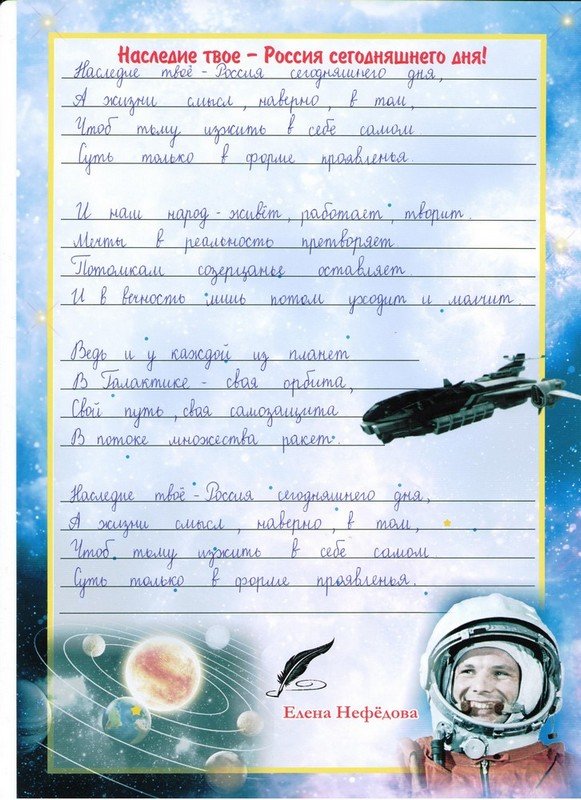 Наследие твое – Россия сегодняшнего дня!
Наследие твоё - Россия сегодняшнего дня,
А жизни смысл, наверно, в том,
Чтоб тьму изжить в себе самом.
Суть только в форме проявленья.
И наш народ - живёт, работает, творит.
Мечты в реальность претворяет.
Потомкам созерцанье оставляет.
И в вечность лишь потом уходит и молчит.
Ведь и у каждой из планет
В Галактике - своя орбита,
Свой путь, своя самозащита
В потоке множества ракет.
Наследие твоё - Россия сегодняшнего дня,
А жизни смысл, наверно, в том,
Чтоб тьму изжить в себе самом.
Суть только в форме проявленья.
Елена Нефёдова